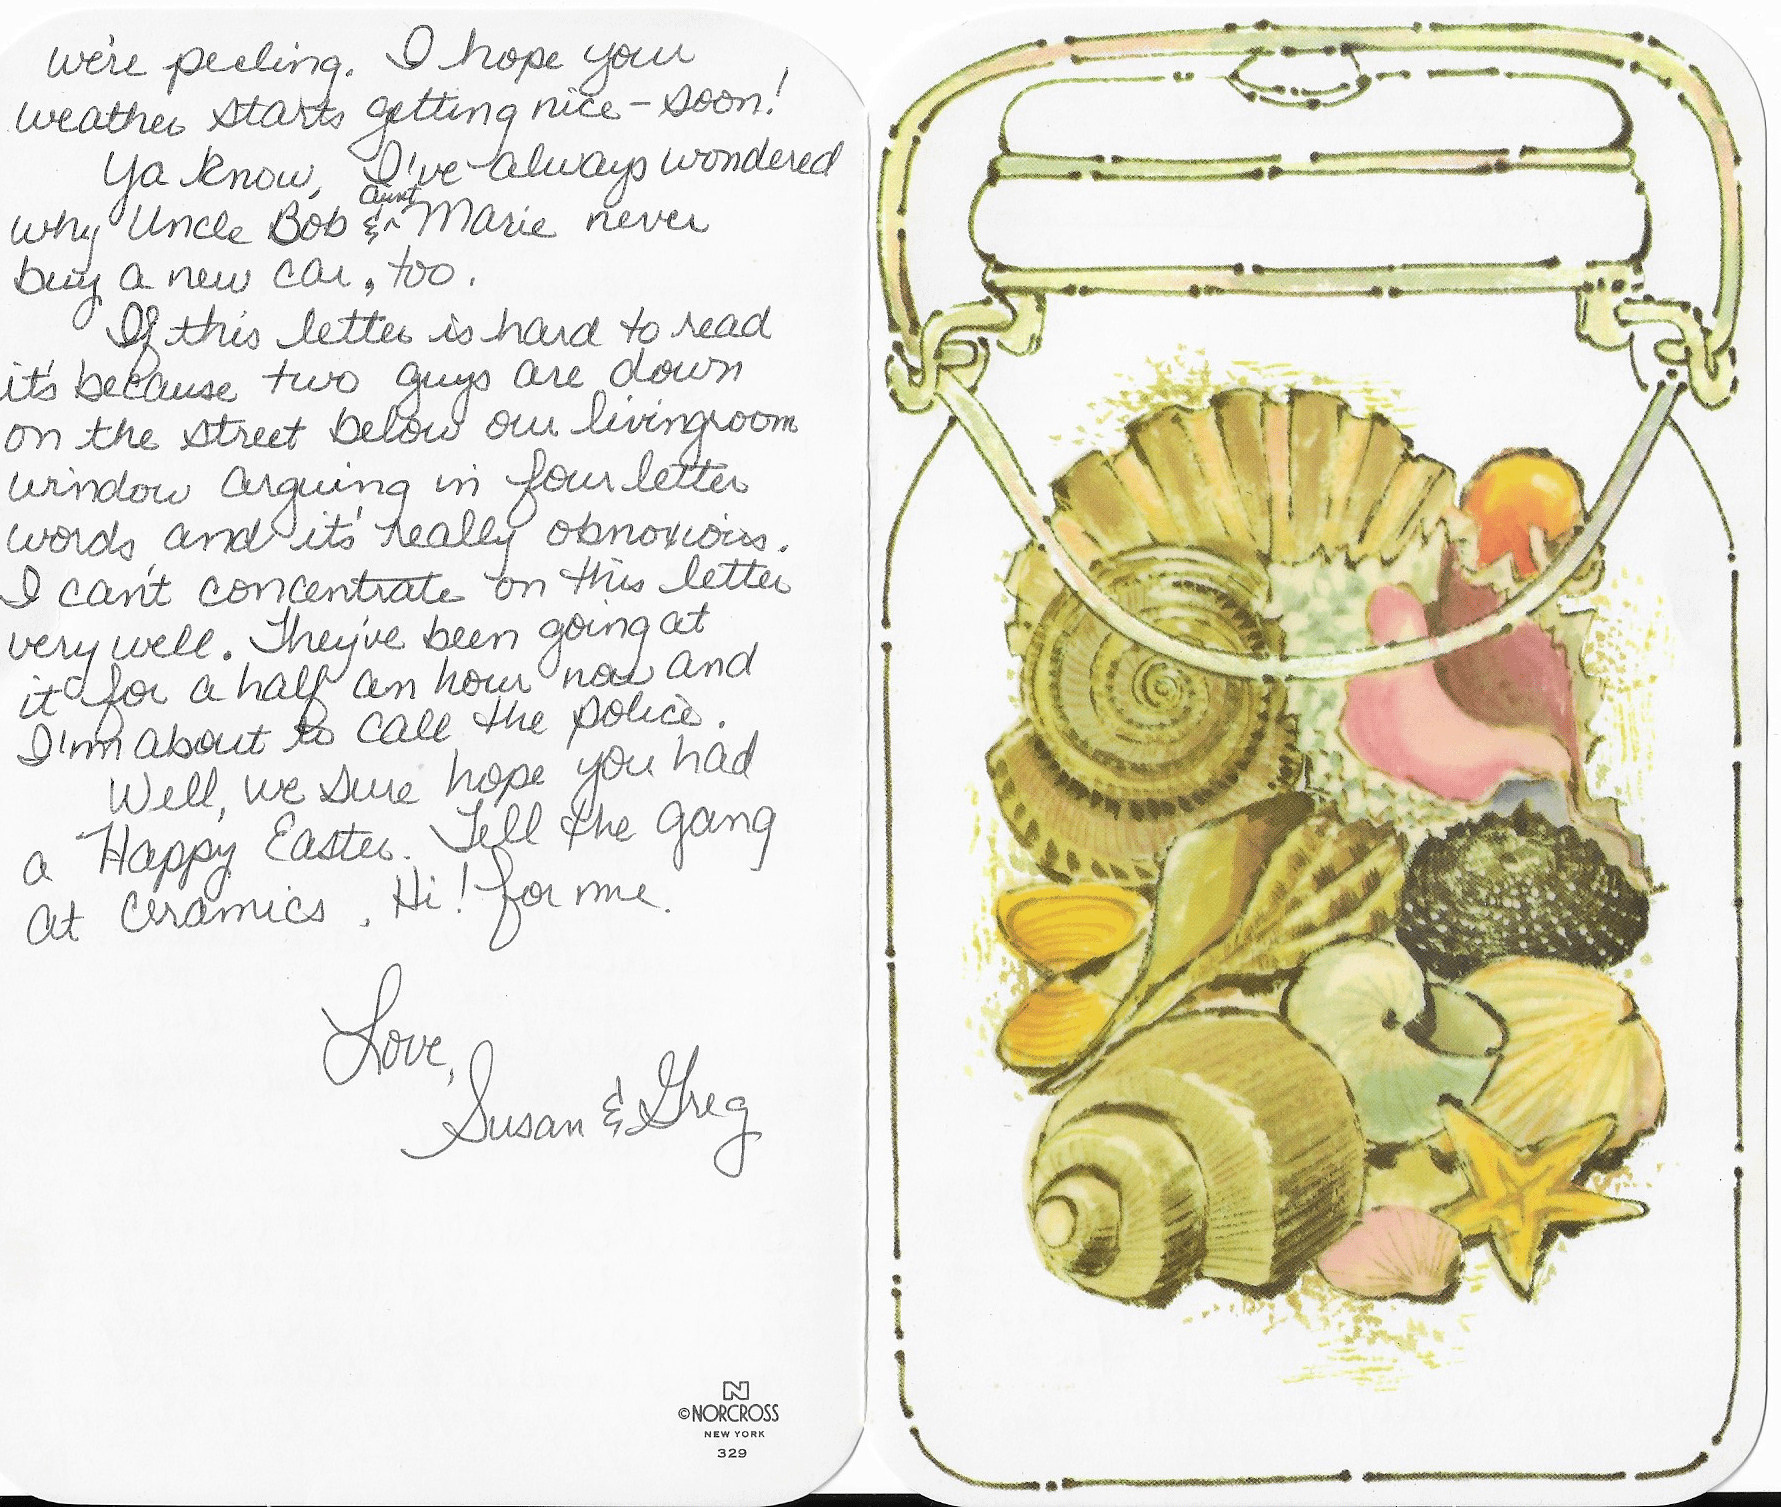 we're peeling. I hope your
weather starts getting nice - soon!
Ya know, I've always wondered
why Uncle Bob & ^aunt Marie never
buy a new car, too.
If this letter is hard to read
it's because two guys are down
on the street below our livingroom
window arguing in four letter
words and it's really obnoxious.
I can't concentrate on this letter
very well. They've been going at
it for a half an hour now and
I'm about to call the police.
Well, we sure hope you had
a Happy Easter. Tell the gang
at ceramics, Hi! for me.
Love,
Susan & Greg
N
©NORCROSS
NEW YORK
329